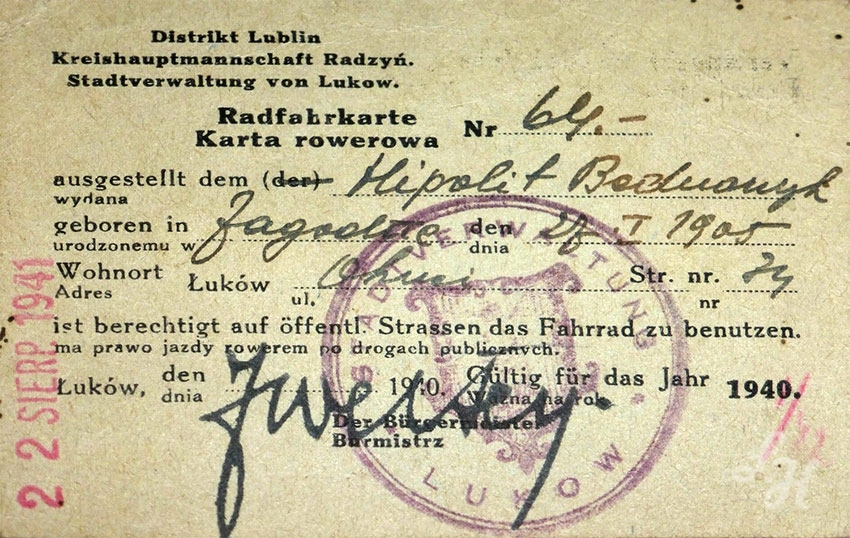 Distrikt Lublin
Kreishauptmannschaft Radzyń.
Stadtverwaltung von Lukow.
Radfahrkarte
Karta rowerowa
Nr 64.-
ausgestellt dem (der) Hipolit
wydana
geboren in den I 1905
urodzonemu w dnia
Wohnort Łuków Str. nr. 34
Adres ul. nr
ist berechtigt auf öffentl. Strassen das Fahrrad zu benutzen.
ma prawo jazdy rowerem po drogach publicznych.
Łuków, den 1940. Gültig für das Jahr 1940.
dnia Ważna na rok
Der Bürgermeister
Burmistrz
STADTVERWALTUNG
LUKOW
22 SIERP 1941